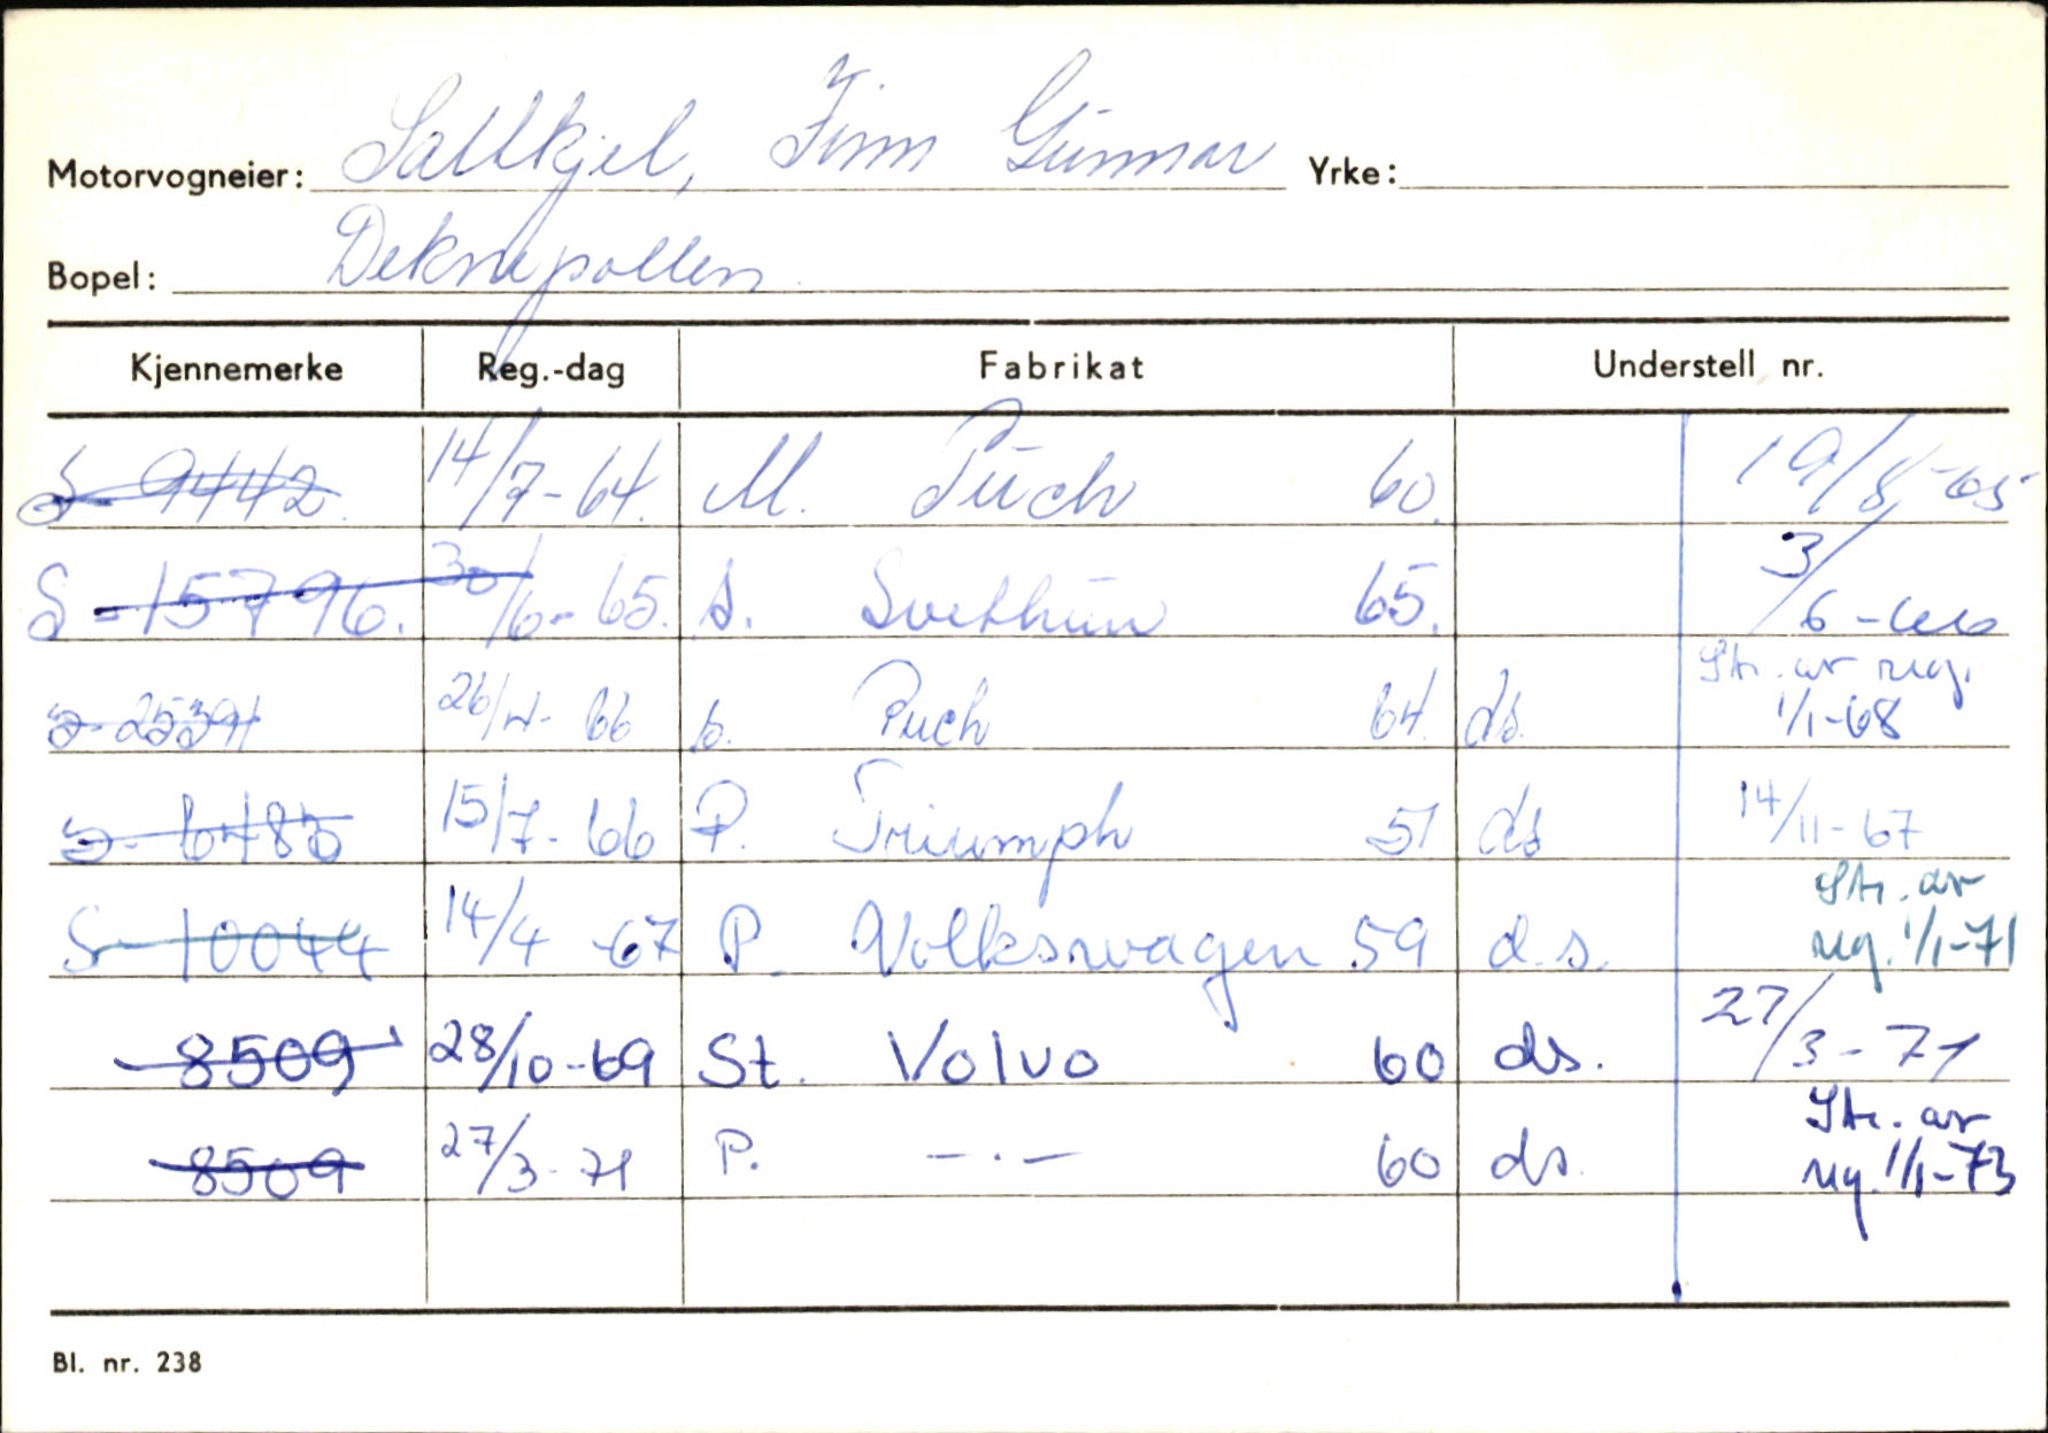 Motorvogneier: Saltkjel, Finn Gunnar Yrke:
Bopel: Deknepollen
Kjennemerke Reg.-dag Fabrikat Understell nr.
S-9442. 14/7-64. M. Puch 60. 19/8-65
S-15796. 30/6-65. S. Svithun 65. 3/6-66
S-25391 26/4-66 b. Puch 64. ds. Str. av reg. 1/1-68
S-6483 15/7-66 P. Triumph 51 ds 14/11-67
S-10044 14/4-67 P. Volkswagen 59 d.s. Str. av reg. 1/1-71
8509 28/10-69 St. Volvo 60 ds. 27/3-71
8509 27/3-71 P. -.- 60 ds. Str. av reg. 1/1-73
Bl. nr. 238